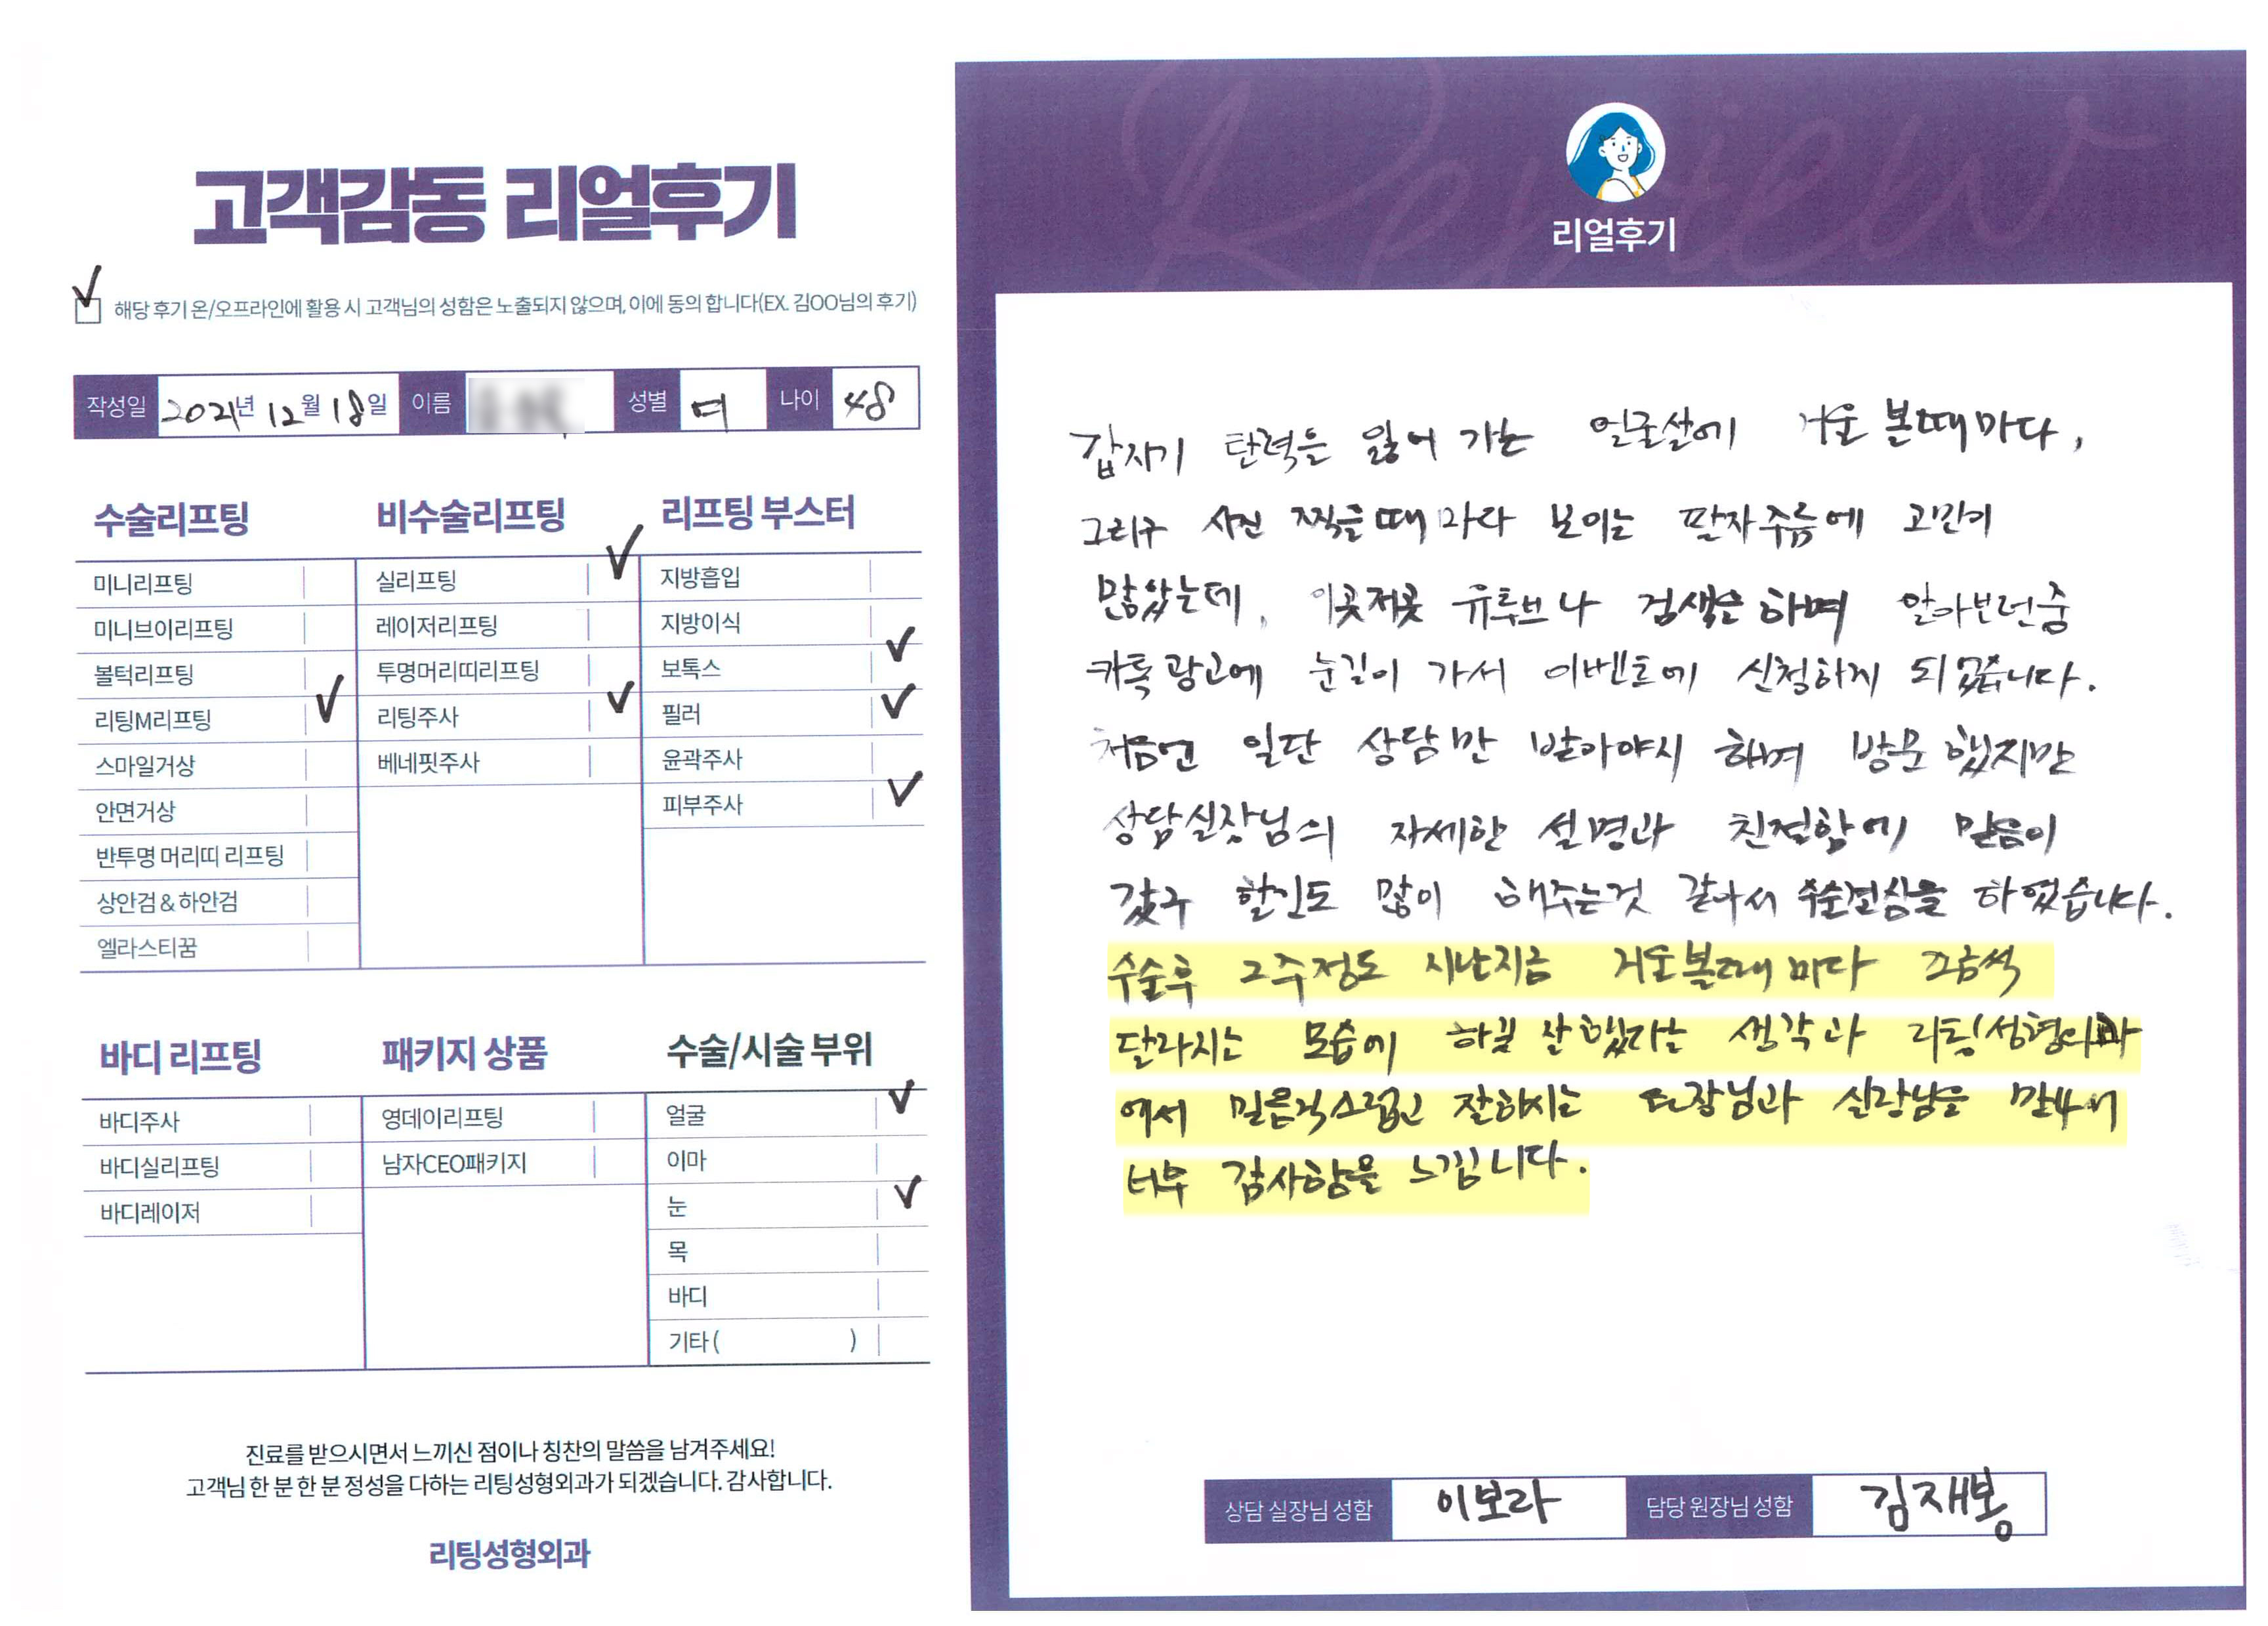 고객감동 리얼후기
✓ 해당 후기 온/오프라인에 활용 시 고객님의 성함은 노출되지 않으며, 이에 동의 합니다(EX. 김OO님의 후기)
작성일 2021년 12월 18일 이름 성별 여 나이 48
수술리프팅 비수술리프팅 리프팅 부스터
미니리프팅 실리프팅 ✓ 지방흡입
미니브이리프팅 레이저리프팅 지방이식
볼턱리프팅 투명머리띠리프팅 보톡스 ✓
리팅M리프팅 ✓ 리팅주사 ✓ 필러 ✓
스마일거상 베네핏주사 윤곽주사
안면거상 피부주사 ✓
반투명 머리띠 리프팅
상안검 & 하안검
엘라스티꿈
바디 리프팅 패키지 상품 수술/시술 부위
바디주사 영데이리프팅 얼굴 ✓
바디실리프팅 남자CEO패키지 이마
바디레이저 눈 ✓
목
바디
기타 ( )
진료를 받으시면서 느끼신 점이나 칭찬의 말씀을 남겨주세요!
고객님 한 분 한 분 정성을 다하는 리팅성형외과가 되겠습니다. 감사합니다.
리팅성형외과
Review
리얼후기
갑자기 탄력을 잃어 가는 얼굴선에 거울 볼때마다,
그리구 사진 찍을때 마다 보이는 팔자주름에 고민이
많았는데, 이곳저곳 유투브나 검색을 하며 알아보던중
카톡광고에 눈길이 가서 이벤트에 신청하게 되었습니다.
처음언 일단 상담만 받아야시 하며 방문 했지만
상담실장님의 자세한 설명과 친절함에 믿음이
갔구 할인도 많이 해주는것 같아서 수술결심을 하였습니다.
수술후 2주정도 지난지금 거울볼때 마다 조금씩
달라지는 모습에 하길 잘했다는 생각과 리팅성형외과
에서 믿음직스럽고 잘하시는 원장님과 실장님을 만나서
너무 감사함을 느낍니다.
상담 실장님 성함 이보라 담당 원장님 성함 김재봉